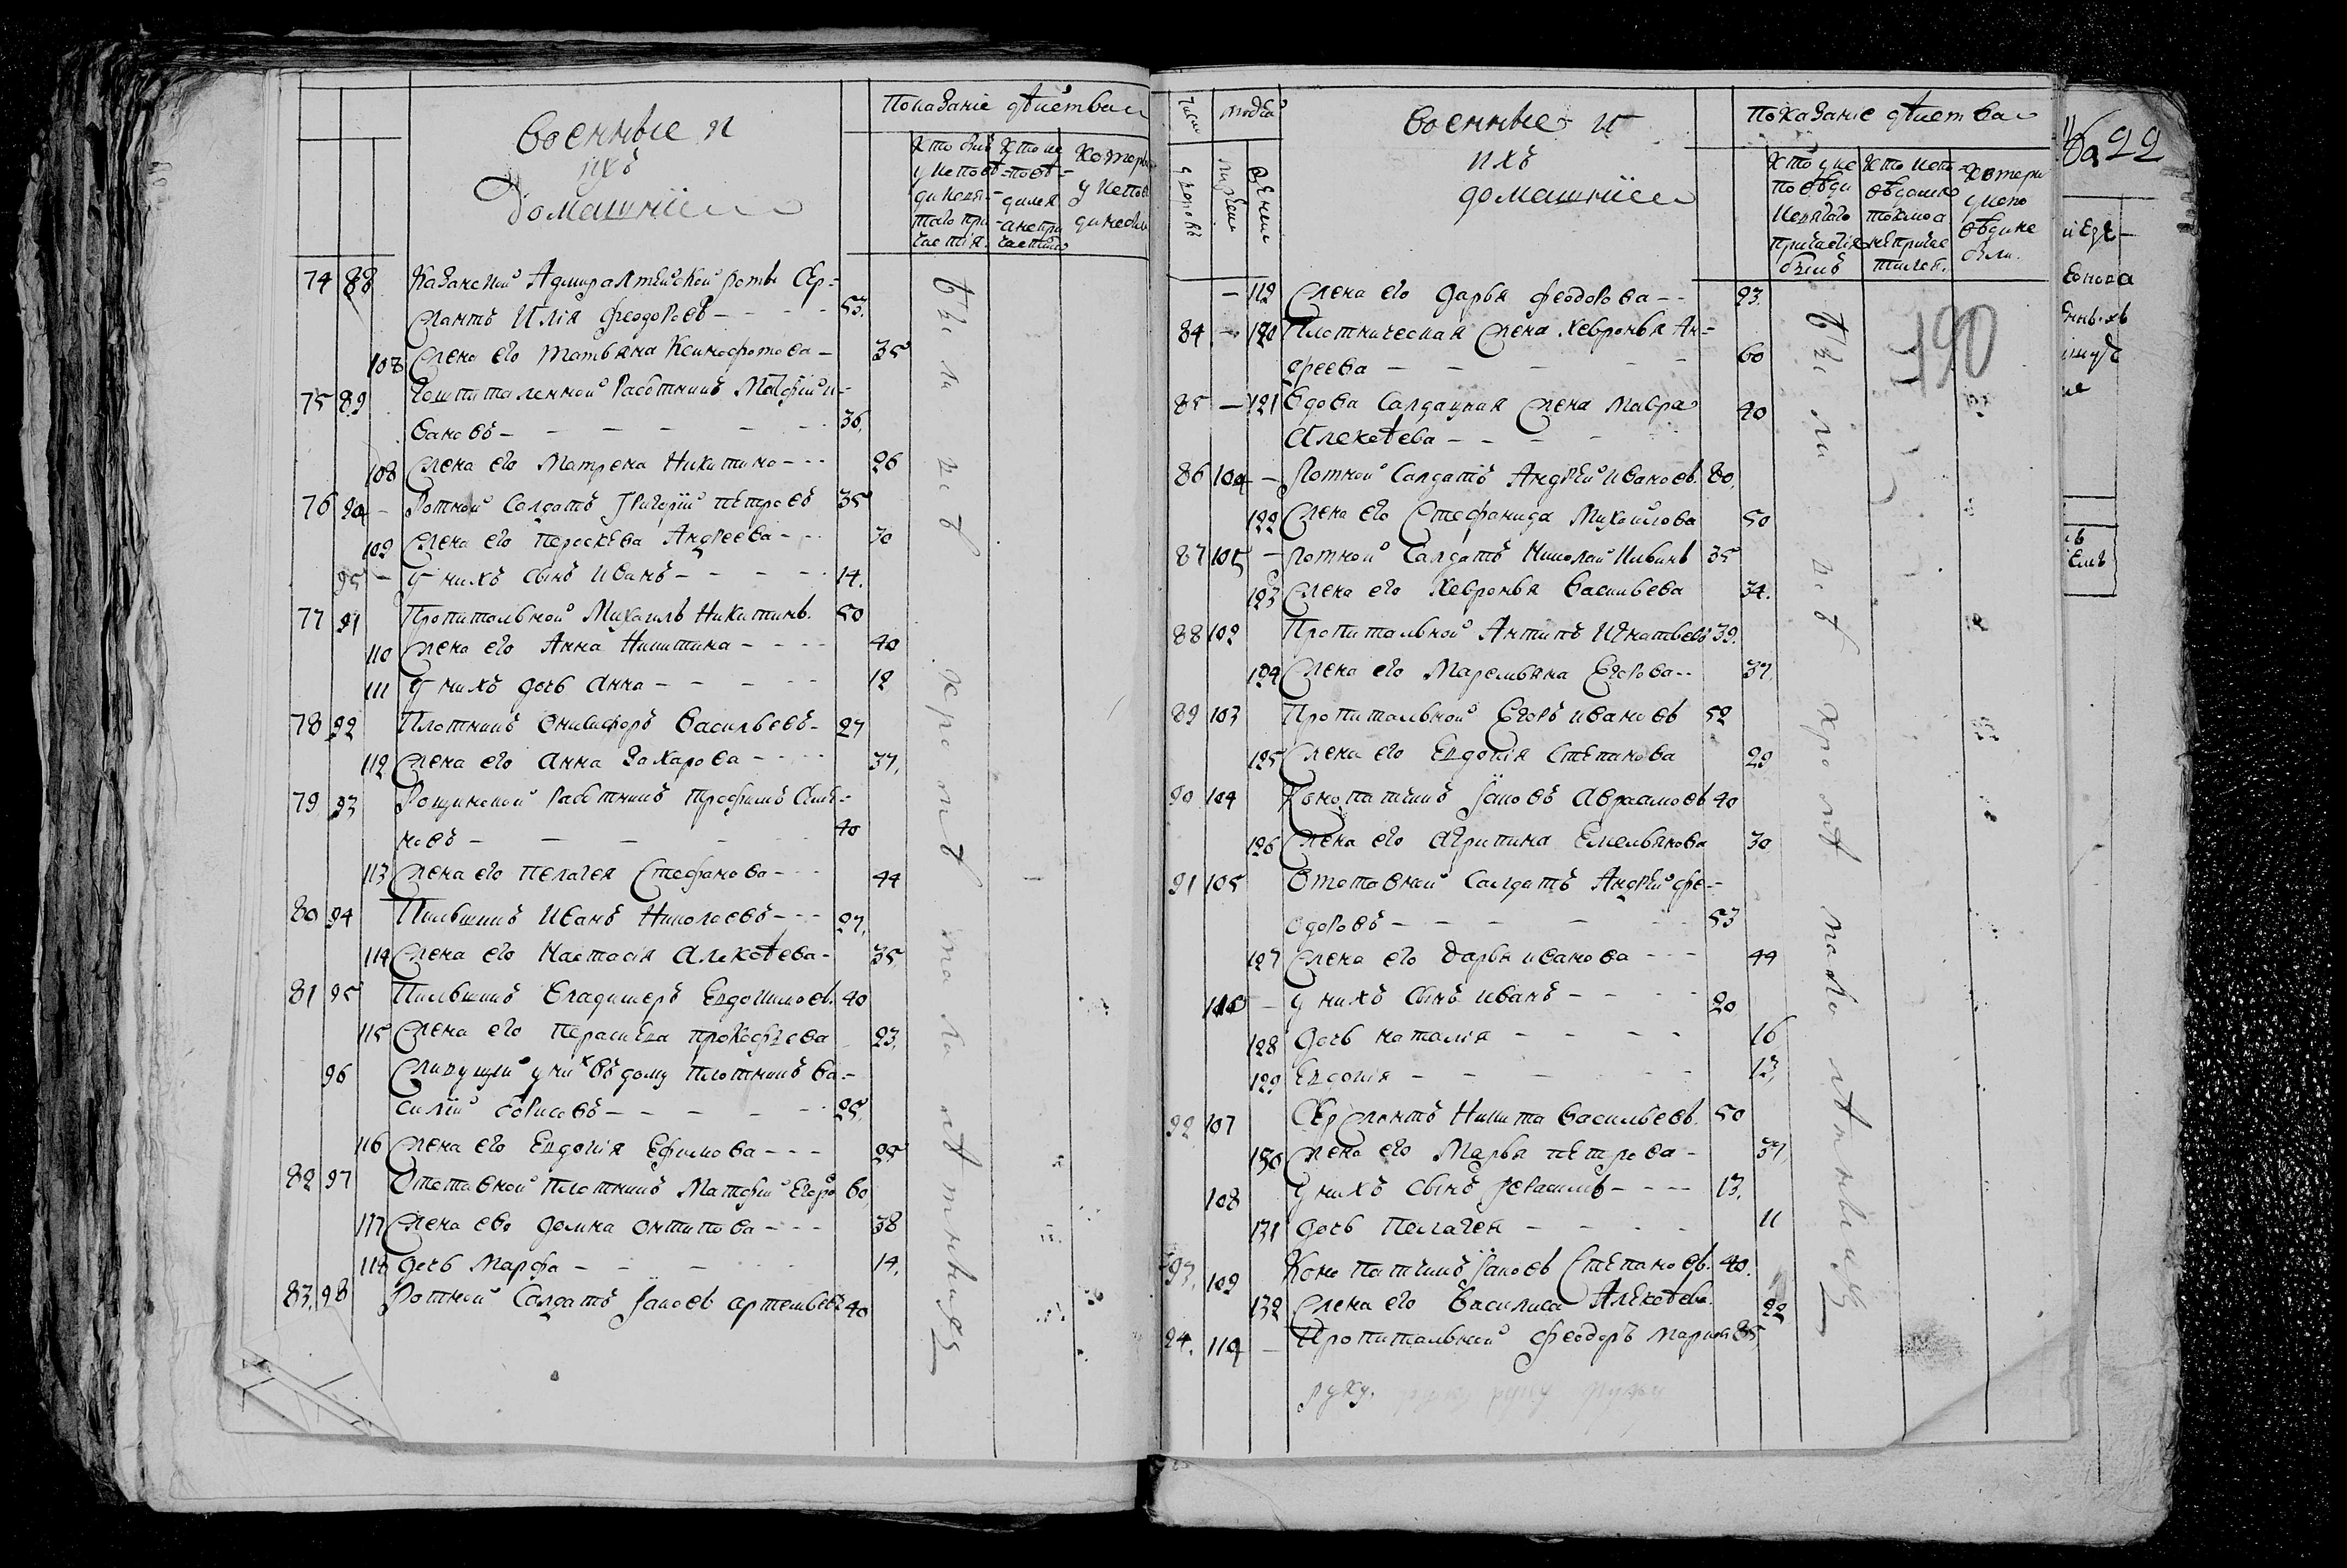 Военные и
ихъ
Домашнии
Показанiе дѣйства
Кто былъ
у исповѣ
ди и свя
таго при
частiя.
Кто не
повѣ
дался
а не при
частился
Которые
у исповѣ
ди не были
74 88 Казанской Адмиралтейской роты Сер=
жантъ Илiя Феодоровъ - - - 53.
107 Жена его Татьяна Ксенофонтова - 35
75 89 Гошпиталенной Работникъ Матфiй И=
вановъ - - - - - 36.
108 Жена его Матрена Никитина - - - 26
76 90 - Ротной Салдатъ Григорiй Петровъ 35
109 Жена его Параскева Андреева - - 30
95 - У нихъ сынъ Иванъ - - - - 14.
77 91 Пропитальной Михаилъ Никитинъ. 50
110 Жена его Анна Никитина - - - - 40
111 У нихъ дочь Анна - - - - - 12
78 92 Плотникъ Никифоръ Васильевъ - 27
112 Жена его Анна Захарова - - - - 37.
79 93 Работникъ Трофимъ Сим=
новъ - - - - - 40
113 Жена его Пелагея Стефанова - - - 44
80 94 Пильщикъ Иванъ Николаевъ - - - 27.
114 Жена его Настасiя Алексѣева - 35
81 95 Пильщикъ Владимеръ Евдокимовъ. 40
115 Жена его Параскева Прокофьева 23.
96 Живущiй у нихъ въ дому плотникъ Ва=
силiй Борисовъ - - - - - 25.
116 Жена его Евдокiя Ефимова - - - 25
82 97 Отставной плотникъ Матфiй Егоро 60
117 Жена ево Домна Антипова - - - 38
118 Дочь Марфа - - - - 14.
83. 98 Ротной Салдатъ Iаковъ Артемьевъ 40
Военные и
ихъ
домашнии
Показанiе дѣйства
число
людей
дворовъ
мужескъ
женскъ
Кто у ис
повѣди
и святаго
причастiя
былъ
Кто испо
вѣдался
токмо а
не причас
тился.
Которы
у испо
вѣди не
были.
190
- 119 Жена его Дарья Феодорова - - 23.
84 - 120 Плотническая жена Хевронья Ан=
дреева - - - - - 60
85 - 121 Вдова Салдацкая жена Мавра 40
Алексѣева - - - -
86 104 - Ротной Салдатъ Андрѣй Ивановъ. 80.
122 Жена его Стефанида Михайлова 50
87 105 - Ротной Салдатъ Николай Ильинъ 35
123 Жена его Хевронья Васильева 34.
88 102 Пропитальной Антипъ Игнатьевъ 39.
124 Жена его Маремьяна Егорова - - 37.
89 103 Пропитальной Егоръ Ивановъ 52
125 Жена его Евдокiя Степанова 29
90 104 Конопатчикъ Iаковъ Авраамовъ 40
126 Жена его Агрипина Емельянова 30
91 105 Отставной Салдатъ Андрѣй Фе=
одоровъ - - - - - 53
127 Жена его Дарья Иванова - - - 44
106 - У нихъ сынъ Иванъ - - - - 20
128 Дочь Наталiя - - - - 16
129 Евдокiя - - - - - 13,
92 107 Сержантъ Никита Васильевъ. 50
130 Жена его Марья Петрова - 37.
108 У нихъ сынъ Герасимъ - - - - 13.
131 дочь Пелагея - - - - 11
93. 109 Конопатчикъ Iаковъ Степановъ. 40.
132 Жена его Василиса Алексѣева. 22
94. 110 - Пропитальной Феодоръ 85,
руку.
22